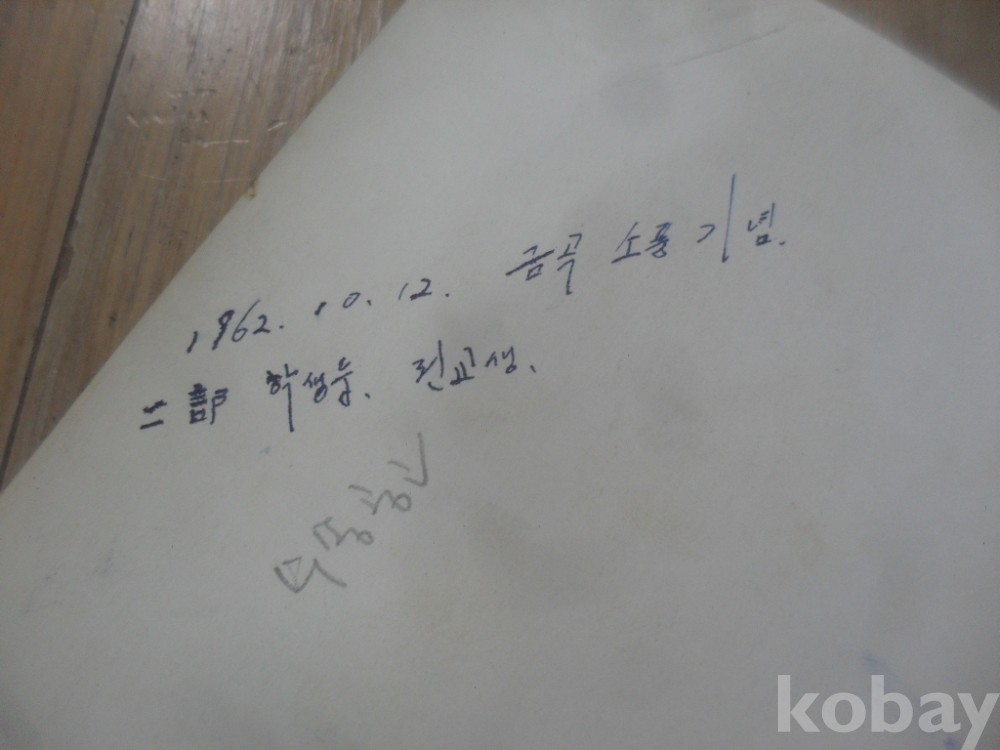 1962. 10. 12. 금곡 소풍 기념.
二部 학생들. 전교생.
kobay